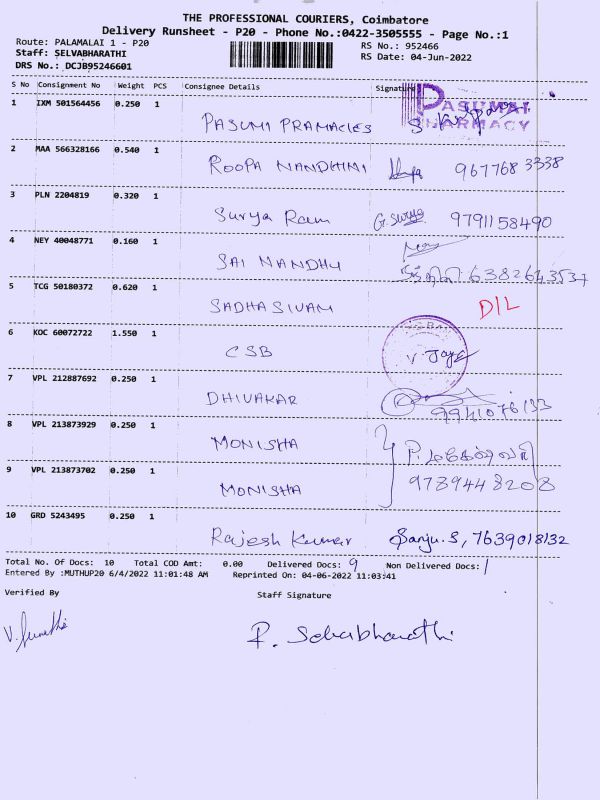 THE PROFESSIONAL COURIERS, Coimbatore
Delivery Runsheet - P20 - Phone No.:0422-3505555 - Page No.:1
Route: PALAMALAI 1 - P20
RS No.: 952466
Staff: SELVABHARATHI
RS Date: 04-Jun-2022
DRS No.: DCJB95246601
S No Consignment No Weight PCS Consignee Details Signature
1 IXM 501564456 0.250 1 PASUMI PRAMACIES
PASUMAI PHARMACY
2 MAA 566328166 0.540 1 ROOPA NANDHINI 9677683338
3 PLN 2204819 0.320 1 Surya Ram G. Surya 9791158490
4 NEY 40048771 0.160 1 SAI NANDHU 6382643537
5 TCG 50180372 0.620 1 SADHA SIVAM D/L
6 KOC 60072722 1.550 1 CSB V. Jaya
7 VPL 212887692 0.250 1 DHIVAKAR 9941076133
8 VPL 213873929 0.250 1 MONISHA P. மகேஸ்வரி
9 VPL 213873702 0.250 1 MONISHA 9789448208
10 GRD 5243495 0.250 1 Rajesh Kumar Sanju.S, 7639018132
Total No. Of Docs: 10 Total COD Amt: 0.00 Delivered Docs: 9 Non Delivered Docs: 1
Entered By :MUTHUP20 6/4/2022 11:01:48 AM Reprinted On: 04-06-2022 11:03:41
Verified By Staff Signature
P. Selvabharathi